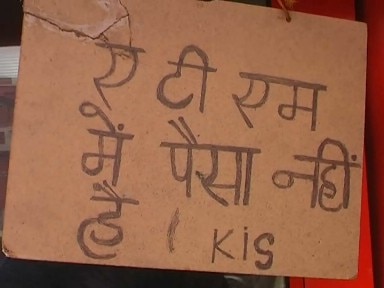 ए टी एम
में पैसा नहीं
है । KiS